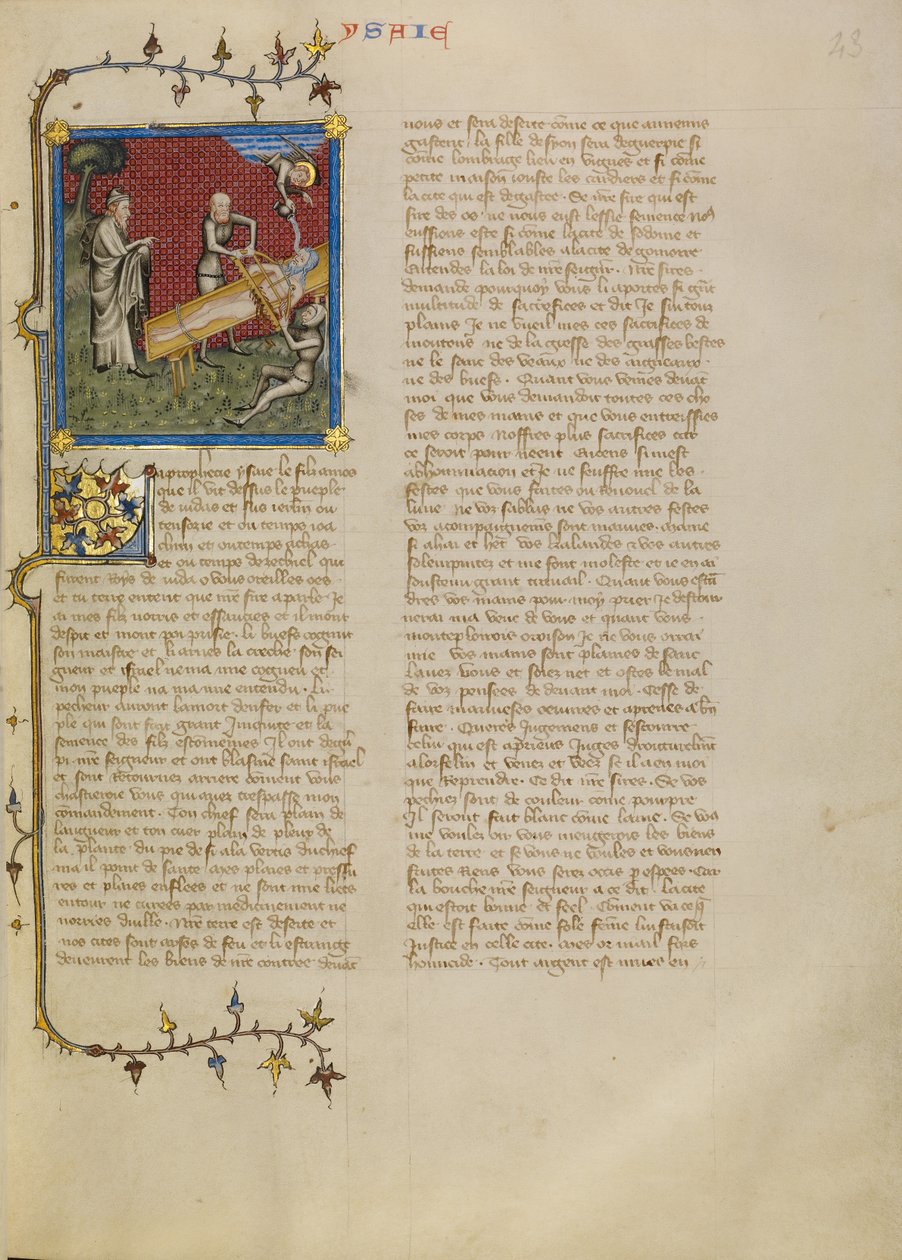 YSAIE
23
La prophecie ysaie le filz amos
que il vit dessus le pueple
de iudas et sus ierlm ou
tens ozie et ou temps ioa
chim et ou temps achas
et ou temps dezechiel qui
furent roys de iuda o vous oreilles oes
et tu terre entent que nre sire a parle Je
ai mes filz norris et essaucies et il mont
despit et mont poi prisie. li buefs cognut
son maistre et li asnes la creche son sei
gneur et israel ne ma mie cogneu et
mon pueple na ma mie entendu. Li
pecheur auront la mort denfer et li pue
ple qui sont fait grant Iniquite et la
semence des filz escomeniies Il ont
nre seigneur et ont blasme saint israel
et sont retournez arriere coment vous
chastieroie vous qui auez trespasse mon
comandement. Ton chief sera plain de
langueur et ton cuer plain de pleur de
la plante du pie de si a la vertis du chief
na il point de sante ares plaies et
res et plaies enflees et ne sont mie liees
entour ne curees par medicinement ne
norries duille. Nre terre est deserte et
nos cites sont arses de feu et li estrange
deueurent les biens de nre contree deuat
nous et sera deserte come ce que annemis
gastent. la fille de syon sera deguerpie si
come lombrage lieu en vignes et si come
petite maison iouste les et si come
la cite qui est degastee. Se nre sire qui est
sire des os ne nous eust lessie semence no9
eussions este si come la cite de sodome et
fussiens semblables a la cite de gomorre
Entendes la loi de nre seigur. Nre sires
demande pourquoy vous li aportes si gnt
multitude de sacrefices et dit Je sui tout
plains Je ne vueil mes ces sacrifices de
moutons ne de la gresse des grasses bestes
ne le sanc des veaux ne des aigneaux
ne des buefs. Quant vous venies deuat
moi que vous demandoit toutes ces cho
ses de mes mains et que vous
mes corps Noffres plus sacrifices car
ce seroit pour neent Encens si mest
abhominacion et Je ne seuffre mie les
festes que vous faites ou renouel de la
lune ne voz sables ne vos autres festes
voz acompaignemens sont mauues. mame
si ahai et het vos kalandes et vos autres
solempnitez et me sont moleste et ie en ai
soustenu grant trauail. Quant vous esta
dres vos mains pour moy prier Je destour
nerai ma veue de vous et quant vous
monteploierois oroison Je ne vous orrai
mie vos mains sont plaines de sanc
Lauez vous et soiez net et ostes le mal
de voz pensees de deuant moi. Cesse de
faire mauueses oeuures et aprenes a bn
faire. Queres Iugemens et secourre
celui qui est apriens Iuges droiturelmt
a lorfelin et venez et veez se il a en moi
que reprendre. Ce dit nre sires. Se vos
pechiez sont de couleur come pourpre
Il seront fait blanc come laine. Se vos
me voules oir vous mengerons les biens
de la terre et se vous ne voules et vous nen
faites riens vous seres occis p espees. Car
la bouche nre seigneur a ce dit. la cite
qui estoit bonne et feel. Coment va ce q
elle est faite come fole feme lui fu soit
Iustice en celle cite. mes or mail fors
homicide. Tout argent est mues en